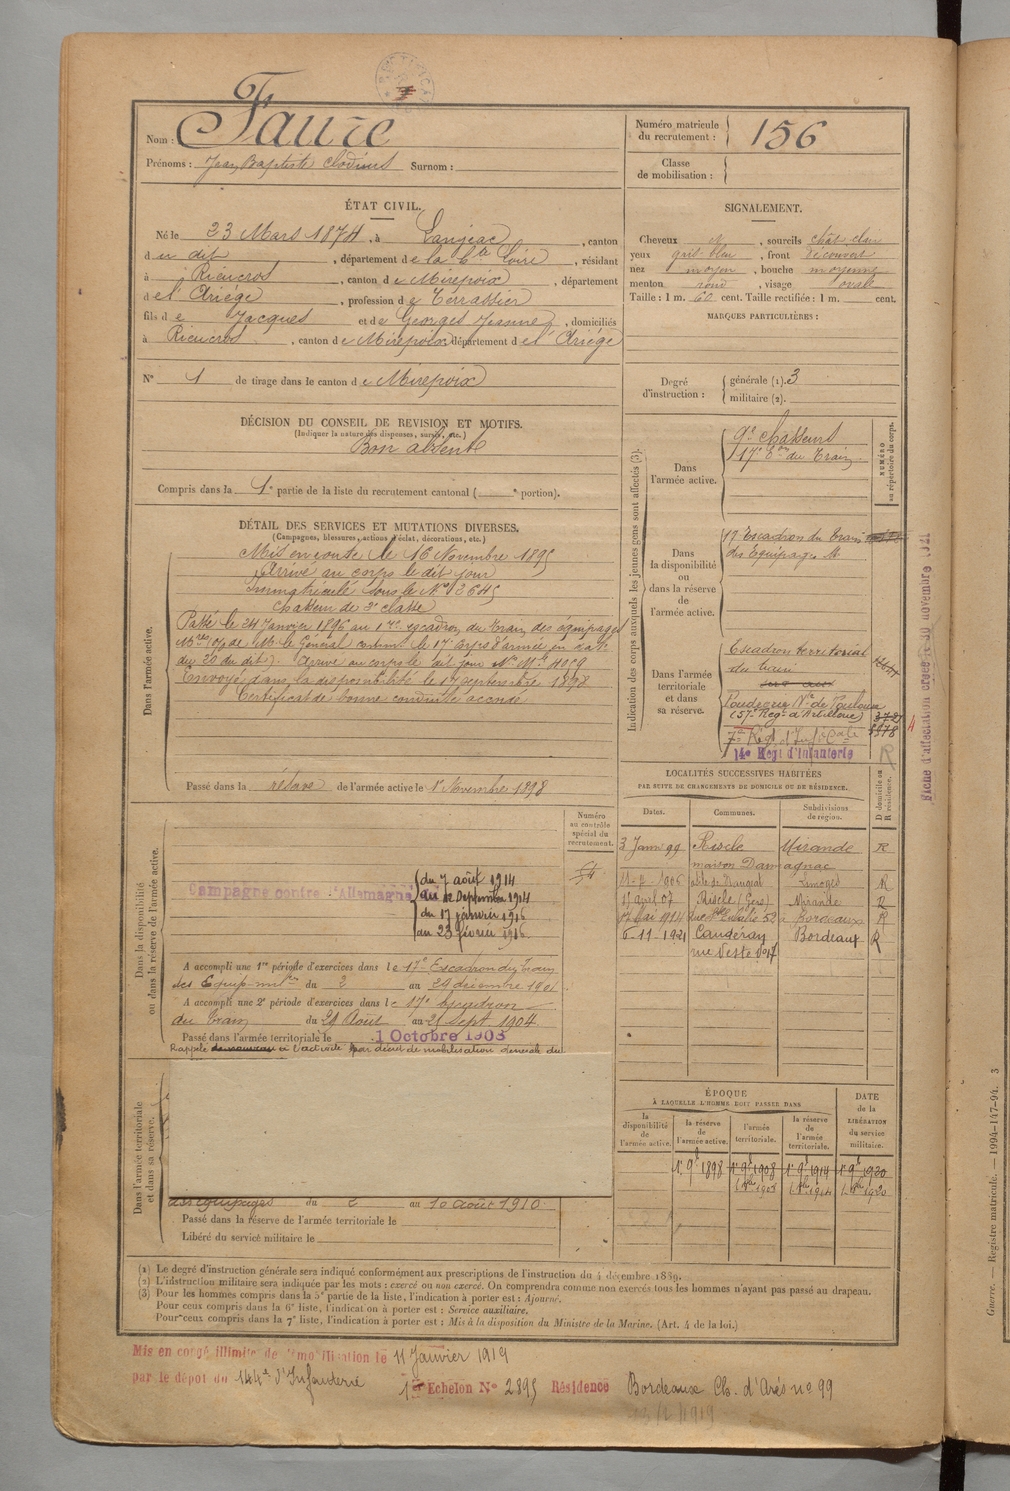 Nom : Faure
Prénoms : Jean Baptiste Clodius Surnom :
Numéro matricule du recrutement : 156
Classe de mobilisation :
ÉTAT CIVIL.
Né le 23 Mars 1874, à Langeac, canton
du dit, département de la Hte Loire, résidant
à Rieucros, canton de Mirepoix, département
de l'Ariège, profession de Terrassier
fils de Jacques et de Georges Jeanne, domiciliés
à Rieucros, canton de Mirepoix département de l'Ariège
N° 1 de tirage dans le canton de Mirepoix
DÉCISION DU CONSEIL DE REVISION ET MOTIFS.
(Indiquer la nature des dispenses, sursis, etc.)
Bon absent
Compris dans la 1e partie de la liste du recrutement cantonal ( e portion).
DÉTAIL DES SERVICES ET MUTATIONS DIVERSES.
(Campagnes, blessures, actions d'éclat, décorations, etc.)
Dans l'armée active.
Mis en route le 16 Novembre 1895
Arrivé au corps le dit jour
Immatriculé sous le N° 3645
Chasseur de 2e classe
Passé le 24 Janvier 1896 au 17e escadron du train des équipages
de Mr le Général command. le 17e corps d'armée en date
du 20 du dit. Arrivé au corps le dit jour N° Mle 4009
Envoyé dans la disponibilité le 17 septembre 1898
Certificat de bonne conduite accordé
Passé dans la réserve de l'armée active le 1er Novembre 1898
SIGNALEMENT.
Cheveux , sourcils chât clair
yeux gris bleu, front découvert
nez moyen, bouche moyenne
menton rond, visage ovale
Taille : 1 m. 60 cent. Taille rectifiée : 1 m. cent.
MARQUES PARTICULIÈRES :
Degré d'instruction : générale (1). 3
militaire (2).
Indication des corps auxquels les jeunes gens sont affectés (3).
NUMÉRO au répertoire du corps.
Dans l'armée active.
9e Chasseurs
17e Eon du Train
Dans la disponibilité ou dans la réserve de l'armée active.
17 Escadron du Train
des Equipages M
Dans l'armée territoriale et dans sa réserve.
Escadron territorial
du train
Poudrerie Nle de Toulouse
(57e Régt d'Artillerie)
144e Regt d'Infanterie
R
Fiche d'affectation créée le 30 novembre 1921
LOCALITÉS SUCCESSIVES HABITÉES
PAR SUITE DE CHANGEMENTS DE DOMICILE OU DE RÉSIDENCE.
Dates. Communes. Subdivisions de région. D domicile ou R résidence.
3 Janv 99 Riscle Mirande R
maison Damagnac
Limoges R
11 avril 07 Riscle (Gers) Mirande R
17 mai 1914 rue Ste Eulalie 52 Bordeaux R
6-11-1921 Caudéran Bordeaux R
Dans la disponibilité ou dans la réserve de l'armée active.
Numéro au contrôle spécial du recrutement.
Campagne contre l'Allemagne
du 7 août 1914
au 12 Septembre 1914
du 17 janvier 1916
au 23 février 1916
A accompli une 1re période d'exercices dans le 17e Escadron du Train
des Equip. milres du 2 au 29 décembre 1901
A accompli une 2e période d'exercices dans le 17e Escadron
du Train du 29 Août au 25 Sept 1904.
Passé dans l'armée territoriale le 1 Octobre 1908
Rappelé à l'activité par décret de mobilisation générale du
Dans l'armée territoriale et dans sa réserve.
des équipages du 2 au 10 août 1910
Passé dans la réserve de l'armée territoriale le
Libéré du service militaire le
ÉPOQUE
À LAQUELLE L'HOMME DOIT PASSER DANS
la disponibilité de l'armée active. la réserve de l'armée active. l'armée territoriale. la réserve de l'armée territoriale.
DATE de la LIBÉRATION du service militaire.
1er 9bre 1898 1er 9bre 1908 1er 9bre 1914 1er 9bre 1920
(1) Le degré d'instruction générale sera indiqué conformément aux prescriptions de l'instruction du 4 décembre 1889.
(2) L'instruction militaire sera indiquée par les mots : exercé ou non exercé. On comprendra comme non exercés tous les hommes n'ayant pas passé au drapeau.
(3) Pour les hommes compris dans la 5e partie de la liste, l'indication à porter est : Ajourné.
Pour ceux compris dans la 6e liste, l'indication à porter est : Service auxiliaire.
Pour ceux compris dans la 7e liste, l'indication à porter est : Mis à la disposition du Ministre de la Marine. (Art. 4 de la loi.)
Mis en congé illimité de démobilisation le 11 Janvier 1919
par le dépôt du 144e d'Infanterie
1er Echelon N° 2895 Résidence Bordeaux Ch. d'Arès no 99
Guerre. — Registre matricule. — 1994-147-94. 3